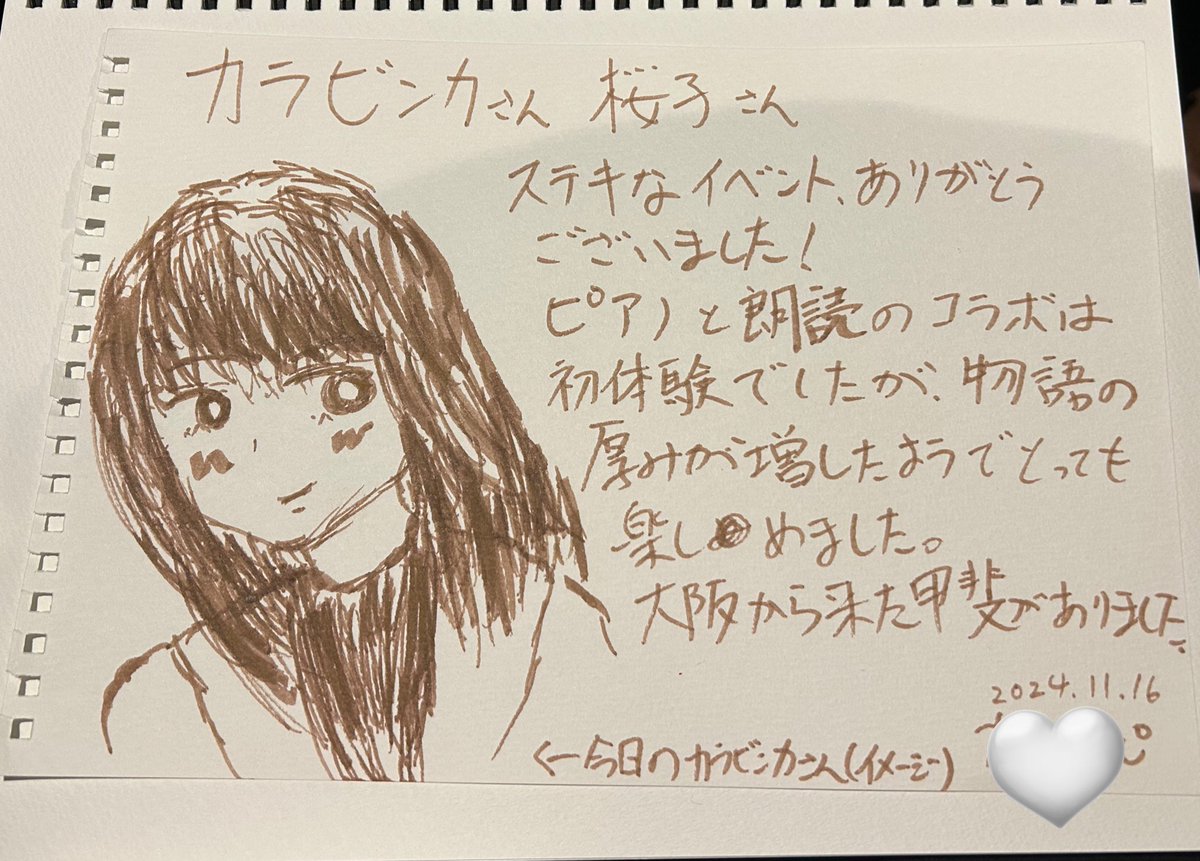 カラビンカさん 桜子さん
ステキなイベント、ありがとう
ございました!
ピアノと朗読のコラボは
初体験でしたが、物語の
厚みが増したようでとっても
楽しめました。
大阪から来た甲斐がありました
2024.11.16
←今日のカラビンカさん(イメージ)